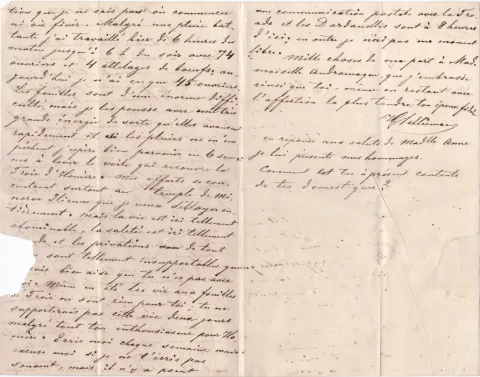 tion que je ne sais pas où commencer
ni où finir. Malgré une pluie bat
tante j'ai travaillé hier de 6 heures du
matin jusqu'à 6 h du soir avec 74
ouvriers et 4 attelages de boeufs; au
jourd'hui je n'ai eu que 45 ouvriers.
Les fouilles sont d'une énorme diffi
culté mais je les pousse avec une très
grande énergie de sorte qu'elles avancent
rapidement et si les pluies ne m'em
pêchent j'espère bien parvenir en 6 semai
nes à lever le voile qui recouvre la
Troie d'Homère. Mes efforts se con
centrent surtout au temple de Mi
nerve Ilienne que je veux déblayer en
tièrement; mais la vie est ici tellement
abominable, la saleté est ici tellement
et les privations de tout
sont tellement insupportables que
suis bien aise que tu n'es pas avec
moi. Même en été les vie aux fouilles
de Troie ne sont rien pour toi; tu ne
supporterais pas cette vie deux jours
malgré tout ton enthousiasme pour Ho
mère. Ecris moi chaque semaine mais
excuse moi si je ne t'écris pas
souvent, mais il n'y a point
une communication postale avec la Tro
ade et les Dardanelles sont à 8 heures
d'ici; en outre je n'ai pas un moment
libre.
Mille choses de ma part à Mad
moiselle Andromaque que j'embrasse
ainsi que toi-même en restant avec
l'affection la plus tendre, ton époux fidèle
HySchliemann
en réponse aux saluts de madlle Anne
je lui présente mes hommages.
Comment est tu à présent contente
de tes domestiques?